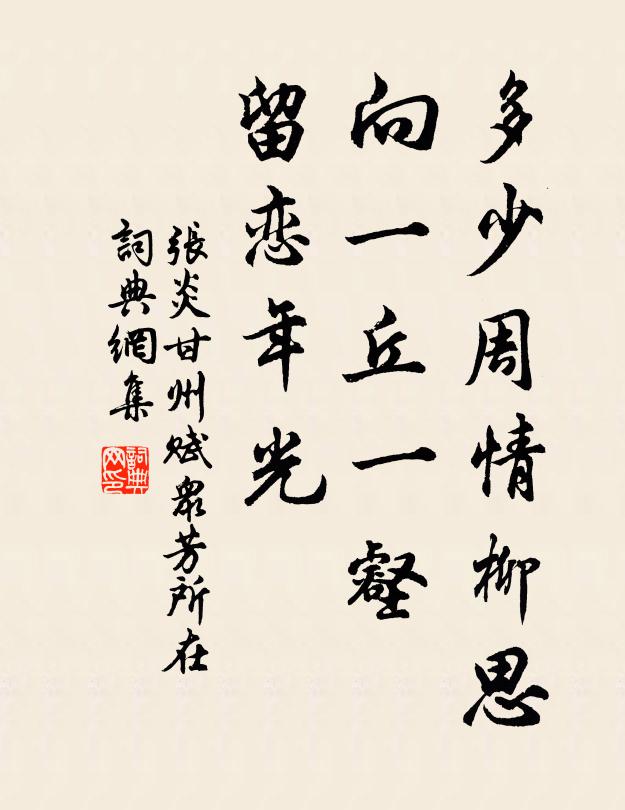 多少周情柳思
向一丘一壑
留恋年光
張炎甘州賦眾芳所在
詞典網集
詞典
网印